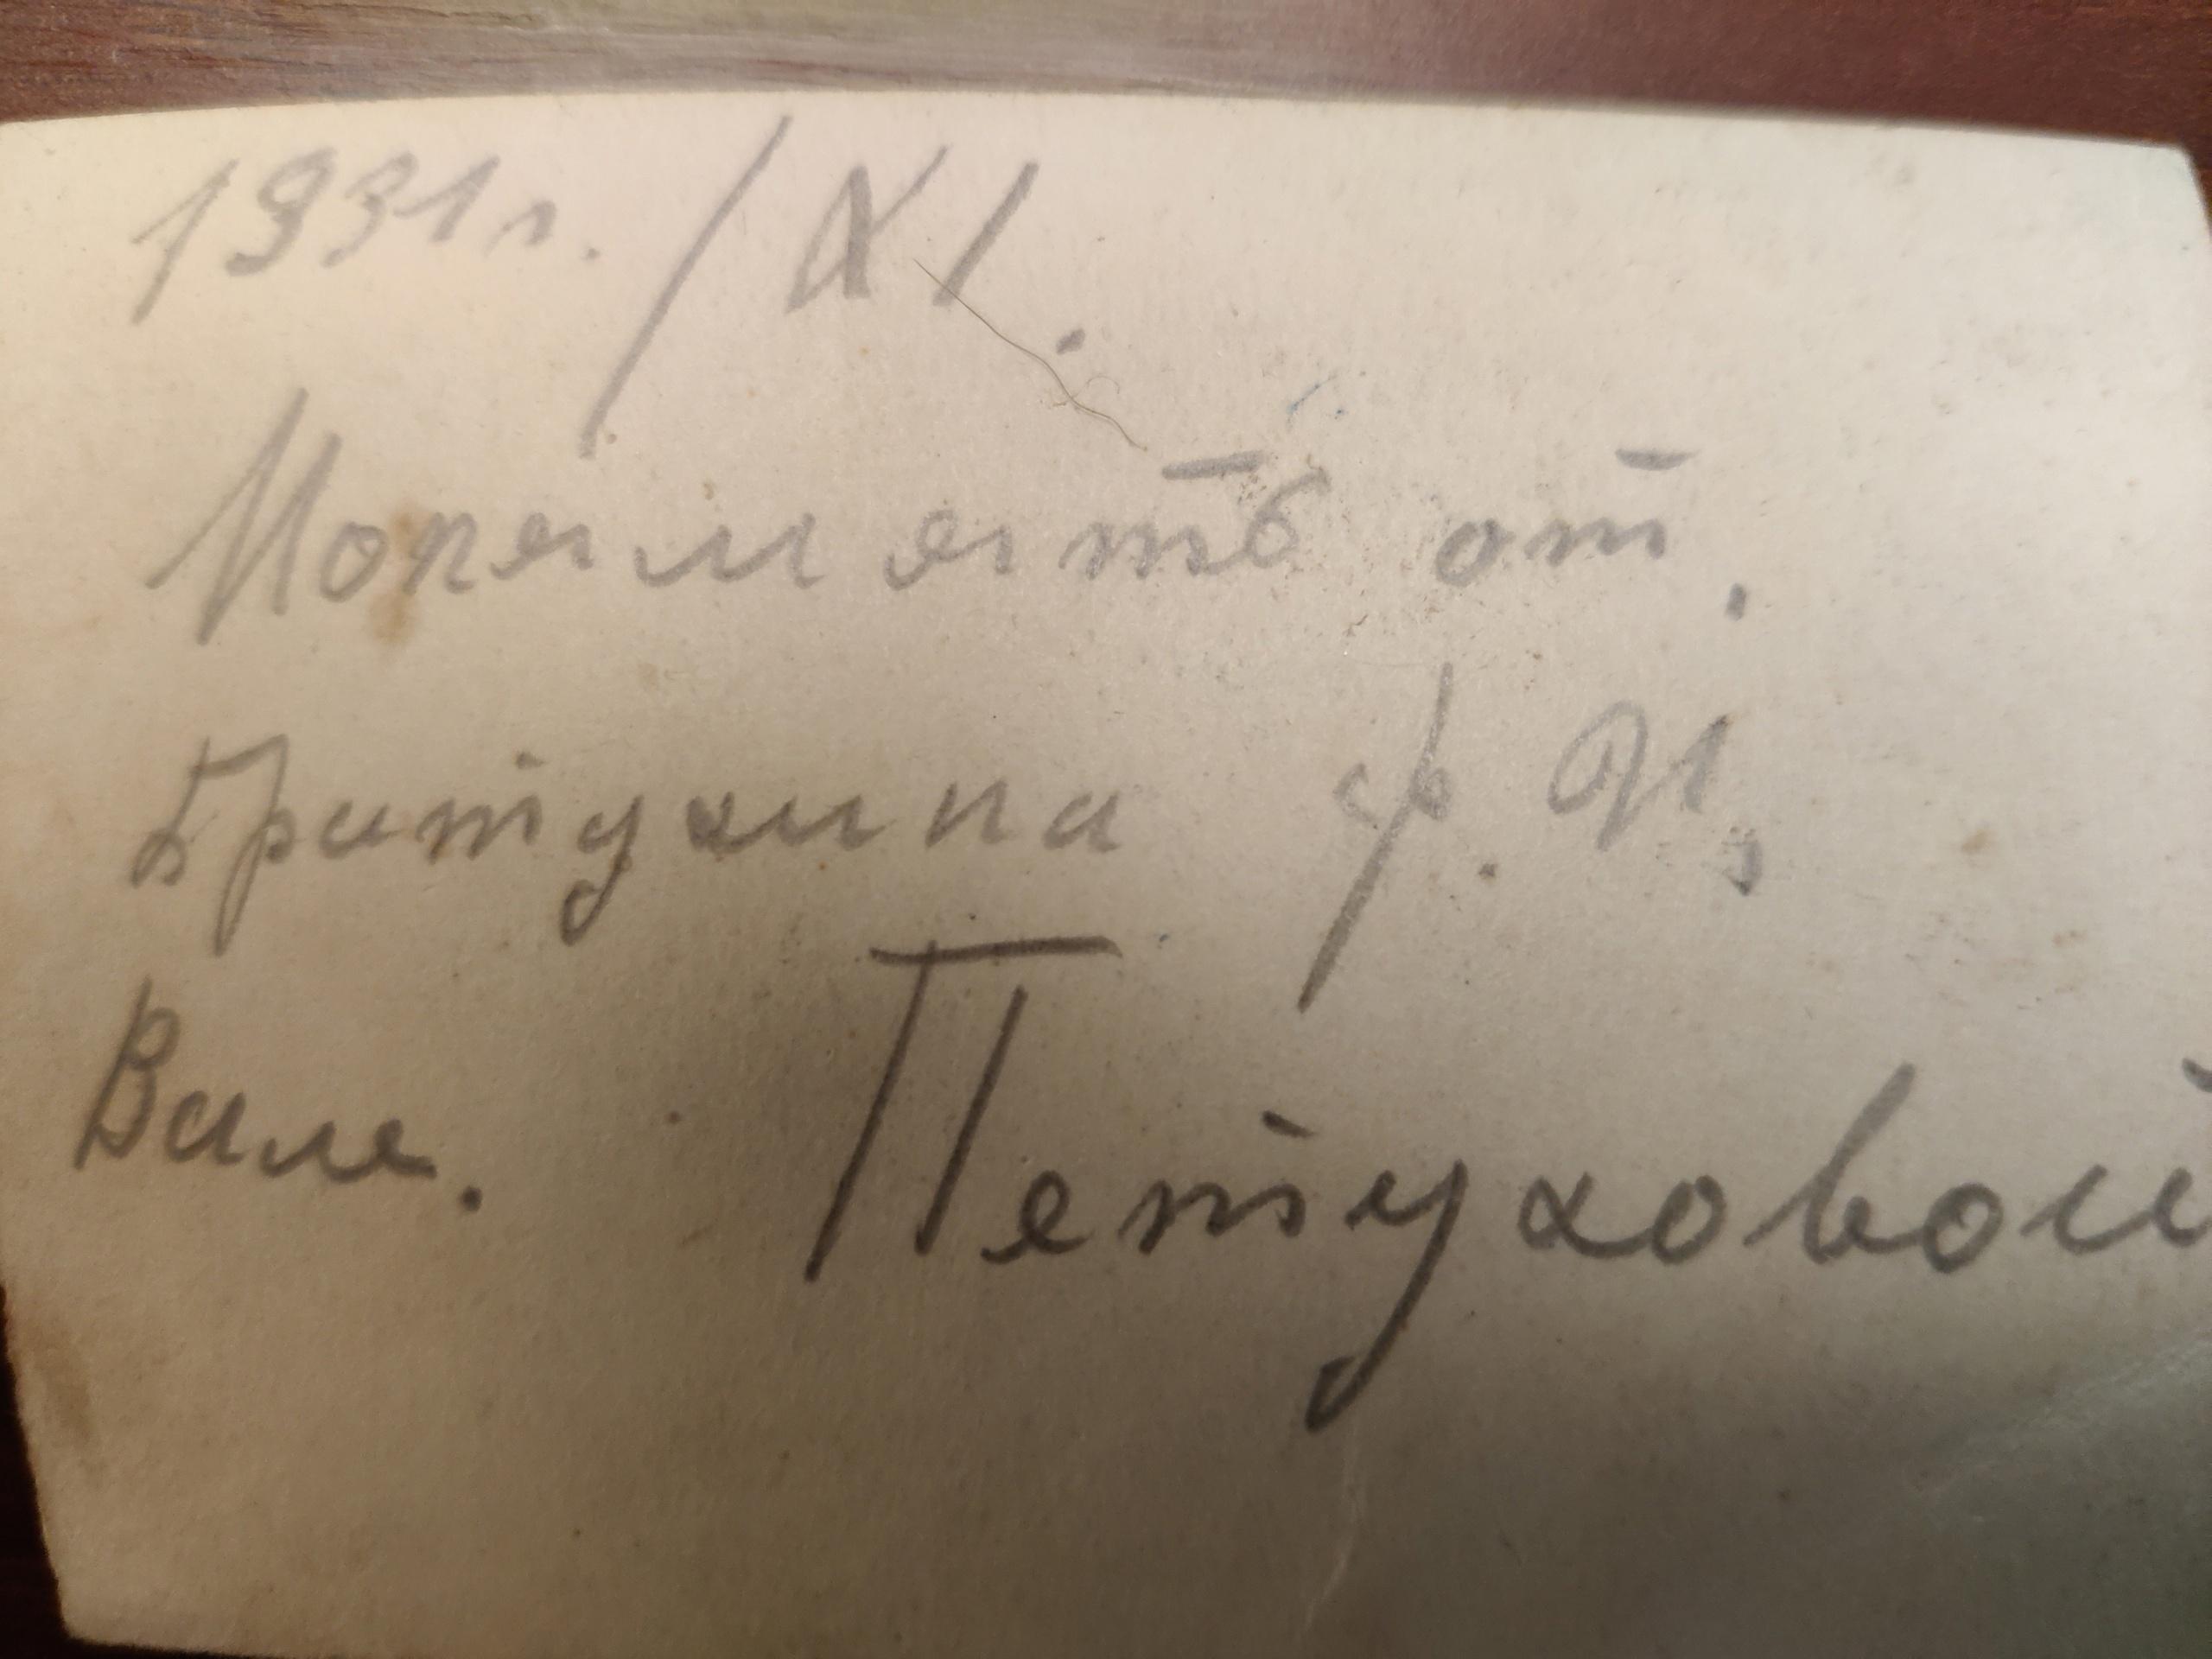 1931 г. / XI.
На память от.
Братухина Ф. И,
Вале. Петуховой